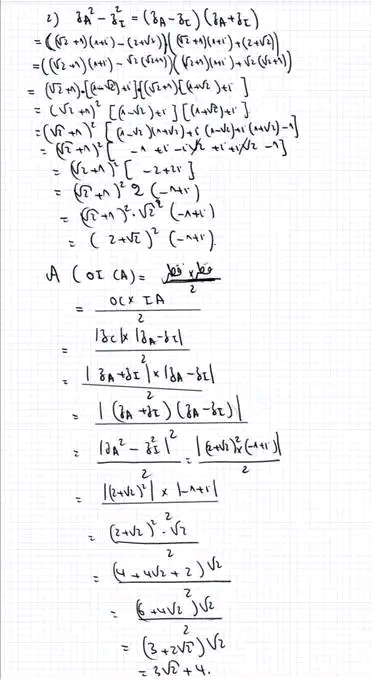 2) zA² - zI² = (zA - zI)(zA + zI)
= ((√2+1)(1+i) - (2+√2))((√2+1)(1+i) + (2+√2))
= ((√2+1)(1+i) - √2(√2+1))((√2+1)(1+i) + √2(√2+1))
= (√2+1)[(1-√2)+i][(√2+1)[(1+√2)+i]
= (√2+1)² [(1-√2)+i][(1+√2)+i]
= (√2+1)² [(1-√2)(1+√2)+i(1-√2)+i(1+√2)-1]
= (√2+1)² [-1+i-i√2+i+i√2-1]
= (√2+1)² [-2+2i]
= (√2+1)² 2 (-1+i)
= (√2+1)² · √2² (-1+i)
= (2+√2)² (-1+i)
A(OICA) = قطر × قطر / 2
= OC × IA / 2
= |zC| × |zA - zI| / 2
= |zA + zI| × |zA - zI| / 2
= |(zA + zI)(zA - zI)| / 2
= |zA² - zI²| / 2 = |(2+√2)² × (-1+i)| / 2
= |(2+√2)²| × |-1+i| / 2
= (2+√2)² · √2 / 2
= (4+4√2+2)√2 / 2
= (6+4√2)√2 / 2
= (3+2√2)√2
= 3√2+4.